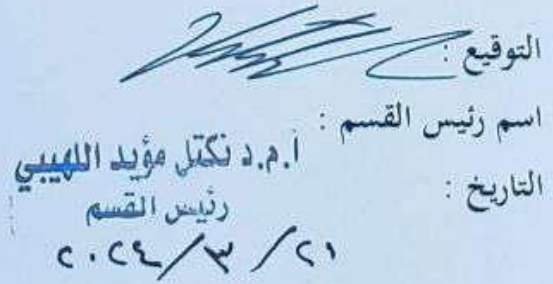 التوقيع :
اسم رئيس القسم :
أ.م.د نكتل مؤيد اللهيبي
التاريخ :
رئيس القسم
٢١ / ٣ / ٢٠٢٤